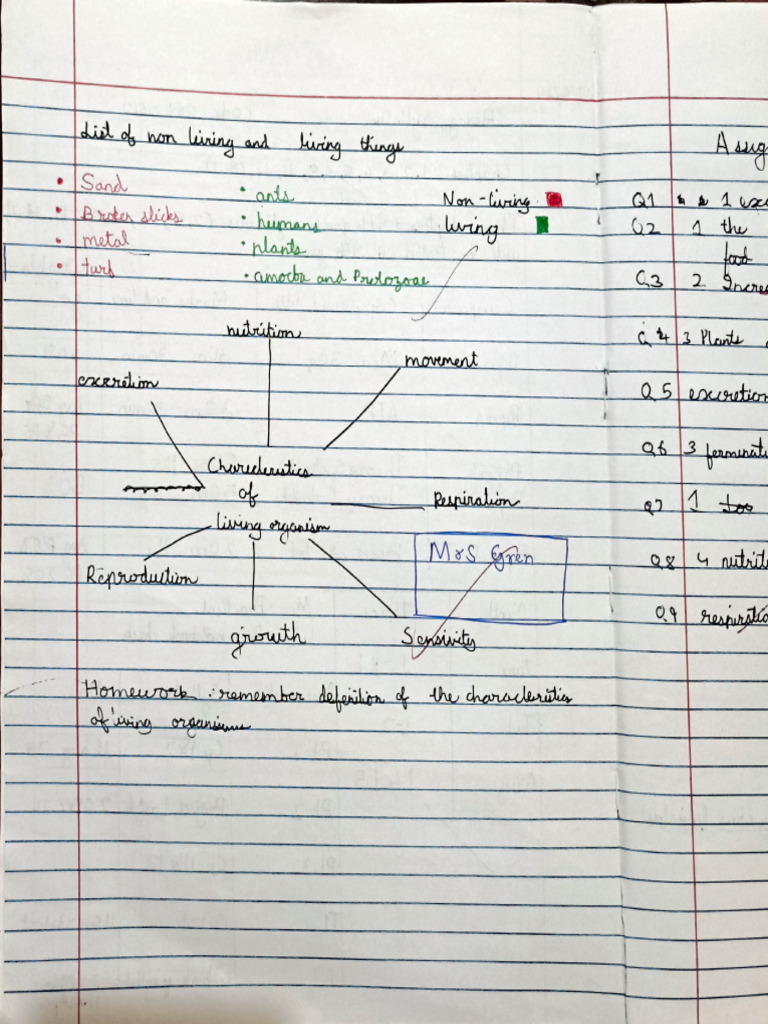 List of non living and living things
• Sand
• Broken sticks
• metal
• turf
• ants
• humans
• plants
• amoeba and Protozoae
Non-living
living
nutrition
movement
excretion
Charecterstics
of
living organism
Respiration
Reproduction
growth
Sensivity
Mrs Gren
Homework : remember defenition of the characterstics
of living organisms
Assig
Q1 1 exc
Q2 1 the
food
Q3 2 Increa
Q4 3 Plants
Q5 excretion
Q6 3 ferminati
Q7 1
Q8 4 nutriti
Q9 respiratio